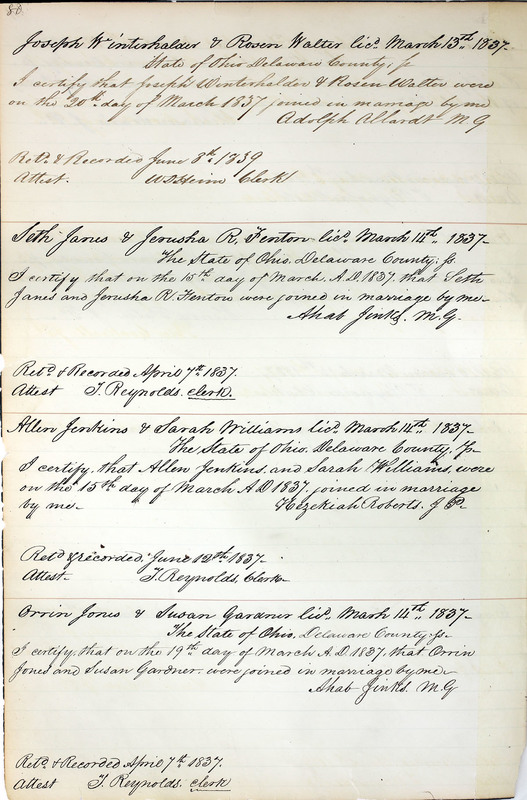 80.
Joseph Winterhalder & Rosen Walter licd. March 13th. 1837-
State of Ohio Delaware County, ss
I certify that Joseph Winterhalder & Rosen Walter were
on the 20th day of March 1837 joined in marriage by me
Adolph Allardt M.G
Retd. & Recorded June 8th. 1839
Attest. Clerk
Seth Janes & Jerusha R. Fenton licd. March 14th. 1837-
The State of Ohio. Delaware County; ss
I certify that on the 15th day of March, A.D. 1837. that Seth
Janes and Jerusha R. Fenton were joined in marriage by me-
Ahab Jinks. M.G.
Retd. & Recorded April 7th. 1837.
Attest T. Reynolds. clerk.
Allen Jenkins & Sarah Williams licd. March 14th. 1837-
The State of Ohio. Delaware County, ss-
I certify, that Allen Jenkins, and Sarah Williams, were
on the 15th day of March A.D 1837. joined in marriage
by me- Hezekiah Roberts. J P.
Retd & recorded, June 12th. 1837-
Attest- T. Reynolds. Clerk-
Orrin Jones & Susan Gardner licd. Marh 14th. 1837-
The State of Ohio. Delaware County; ss-
I certify, that on the 19th day of March A.D 1837. that Orrin
Jones and Susan Gardner. were joined in marriage by me-
Ahab Jinks. M.G
Retd. & Recorded April 7th. 1837.
Attest T. Reynolds. clerk